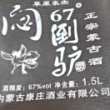 草原家宴
闷倒驴
67°
正宗蒙古酒
酒精度：67%vol 净含量：1.5L
内蒙古康庄酒业有限公司